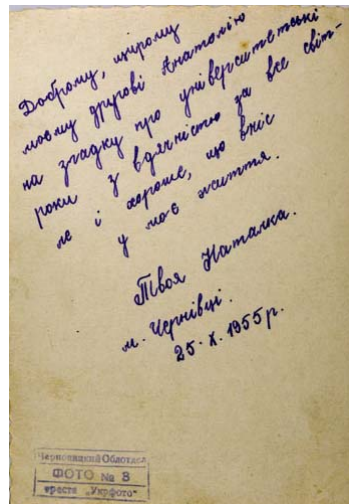 Доброму, щирому
моєму другові Анатолію
на згадку про університетські
роки з вдячністю за все світ-
ле і хороше, що вніс
у моє життя.
Твоя Наталка.
м. Чернівці.
25. X. 1955 р.
Черновицкий Облотдел
ФОТО № 3
треста „Укрфото"